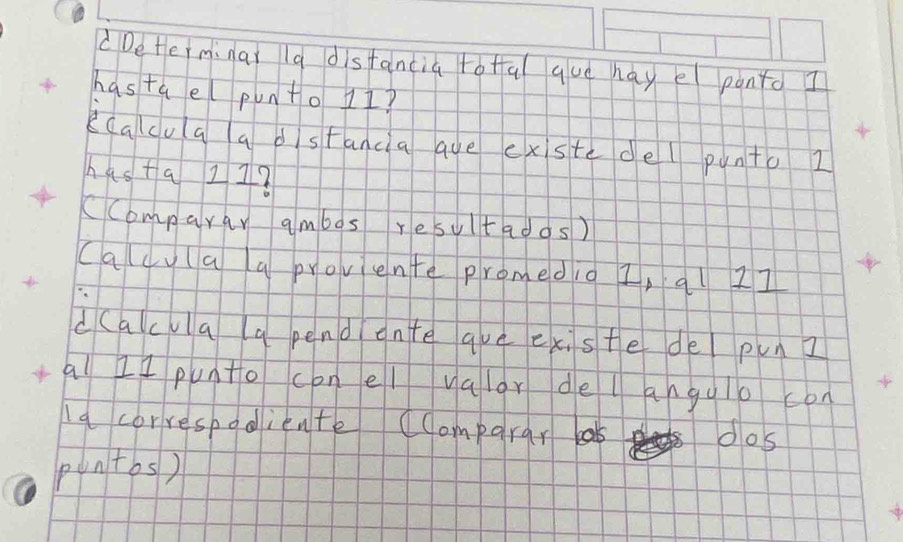 ¿Determinar la distancia total que hay el ponto 1
hasta el punto 11?
¿Calcula la distancia que existe del punto 1
hasta 11?
(Comparar ambos resultados)
Calcula la proviente promedio 1, al 11
¿Calcula la pendiente que existe del pun 1
al 11 punto con el valor del angulo con
la correspodiente (Comparar los dos
puntos)